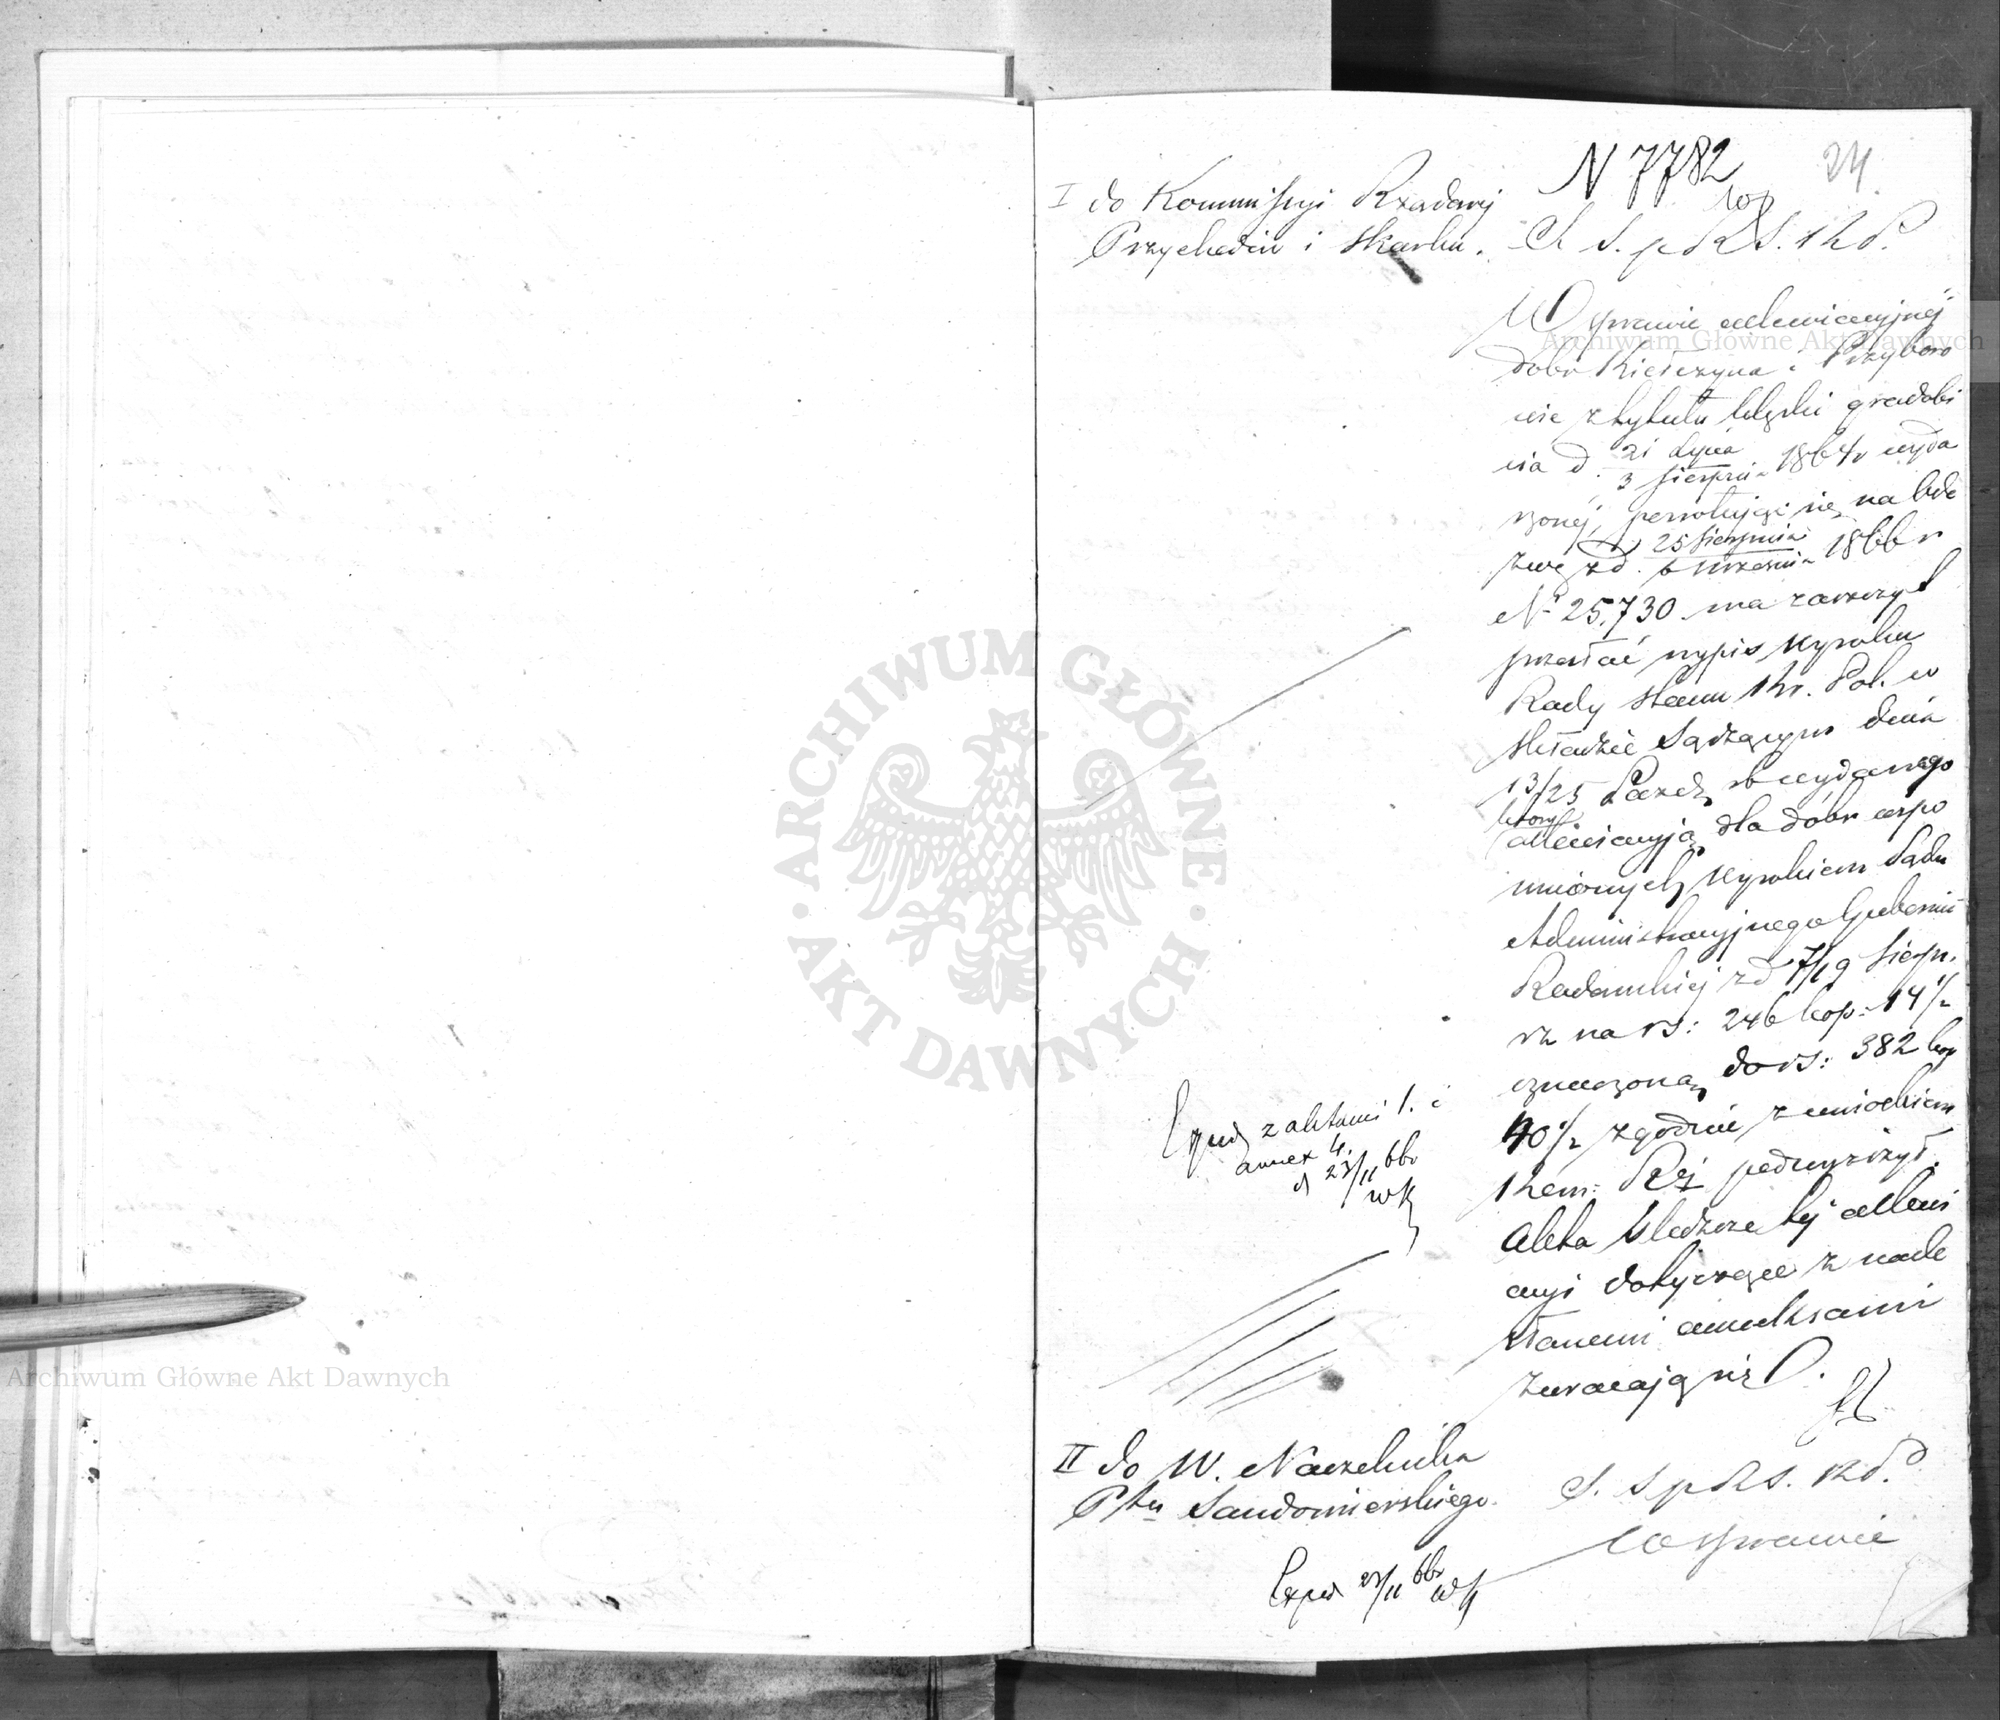 N 7782
24.
I do Kommissyi Rządowej
Przychodów i Skarbu.
S. p. R. S. K. P.
W sprawie allewiacyjnej
dobr Kiełczyna i Przyboro
wie z tytułu klęski gradobi
cia d. 21 Lipca
3 Sierpnia 1864 r wyda
rzonej, powołując się na Ode
zwę z d. 25 Sierpnia
6 Września 1866 r
N 25,730 ma zaszczyt
przesłać wypis wyroku
Rady Stanu Kr. Pol. w
składzie Sądzącym dnia
13/25 Paźdz rb wydanego
który
allewiacyją dla dóbr wspo
mnionych wyrokiem Sądu
Administracyjnego Gubernii
Radomskiej z d 7/19 Sierpn.
rz na rs: 246 kop: 14 1/2
oznaczoną do rs: 382 kop
40 1/2 zgodnie z wnioskiem
Kom: Rz: podwyższył.
Akta śledcze tej allewi
acyi dotyczące z nade
słanemi annexami
zwracają się.
Exped z aktami 1. i
annex 4.
d 23/11 66r
WK
II do W. Naczelnika
Ptu Sandomierskiego.
S. S p R S. K P.
W sprawie
Exped 23/11 66r WK
Archiwum Główne Akt Dawnych
Archiwum Główne Akt Dawnych
ARCHIWUM GŁÓWNE · AKT DAWNYCH ·